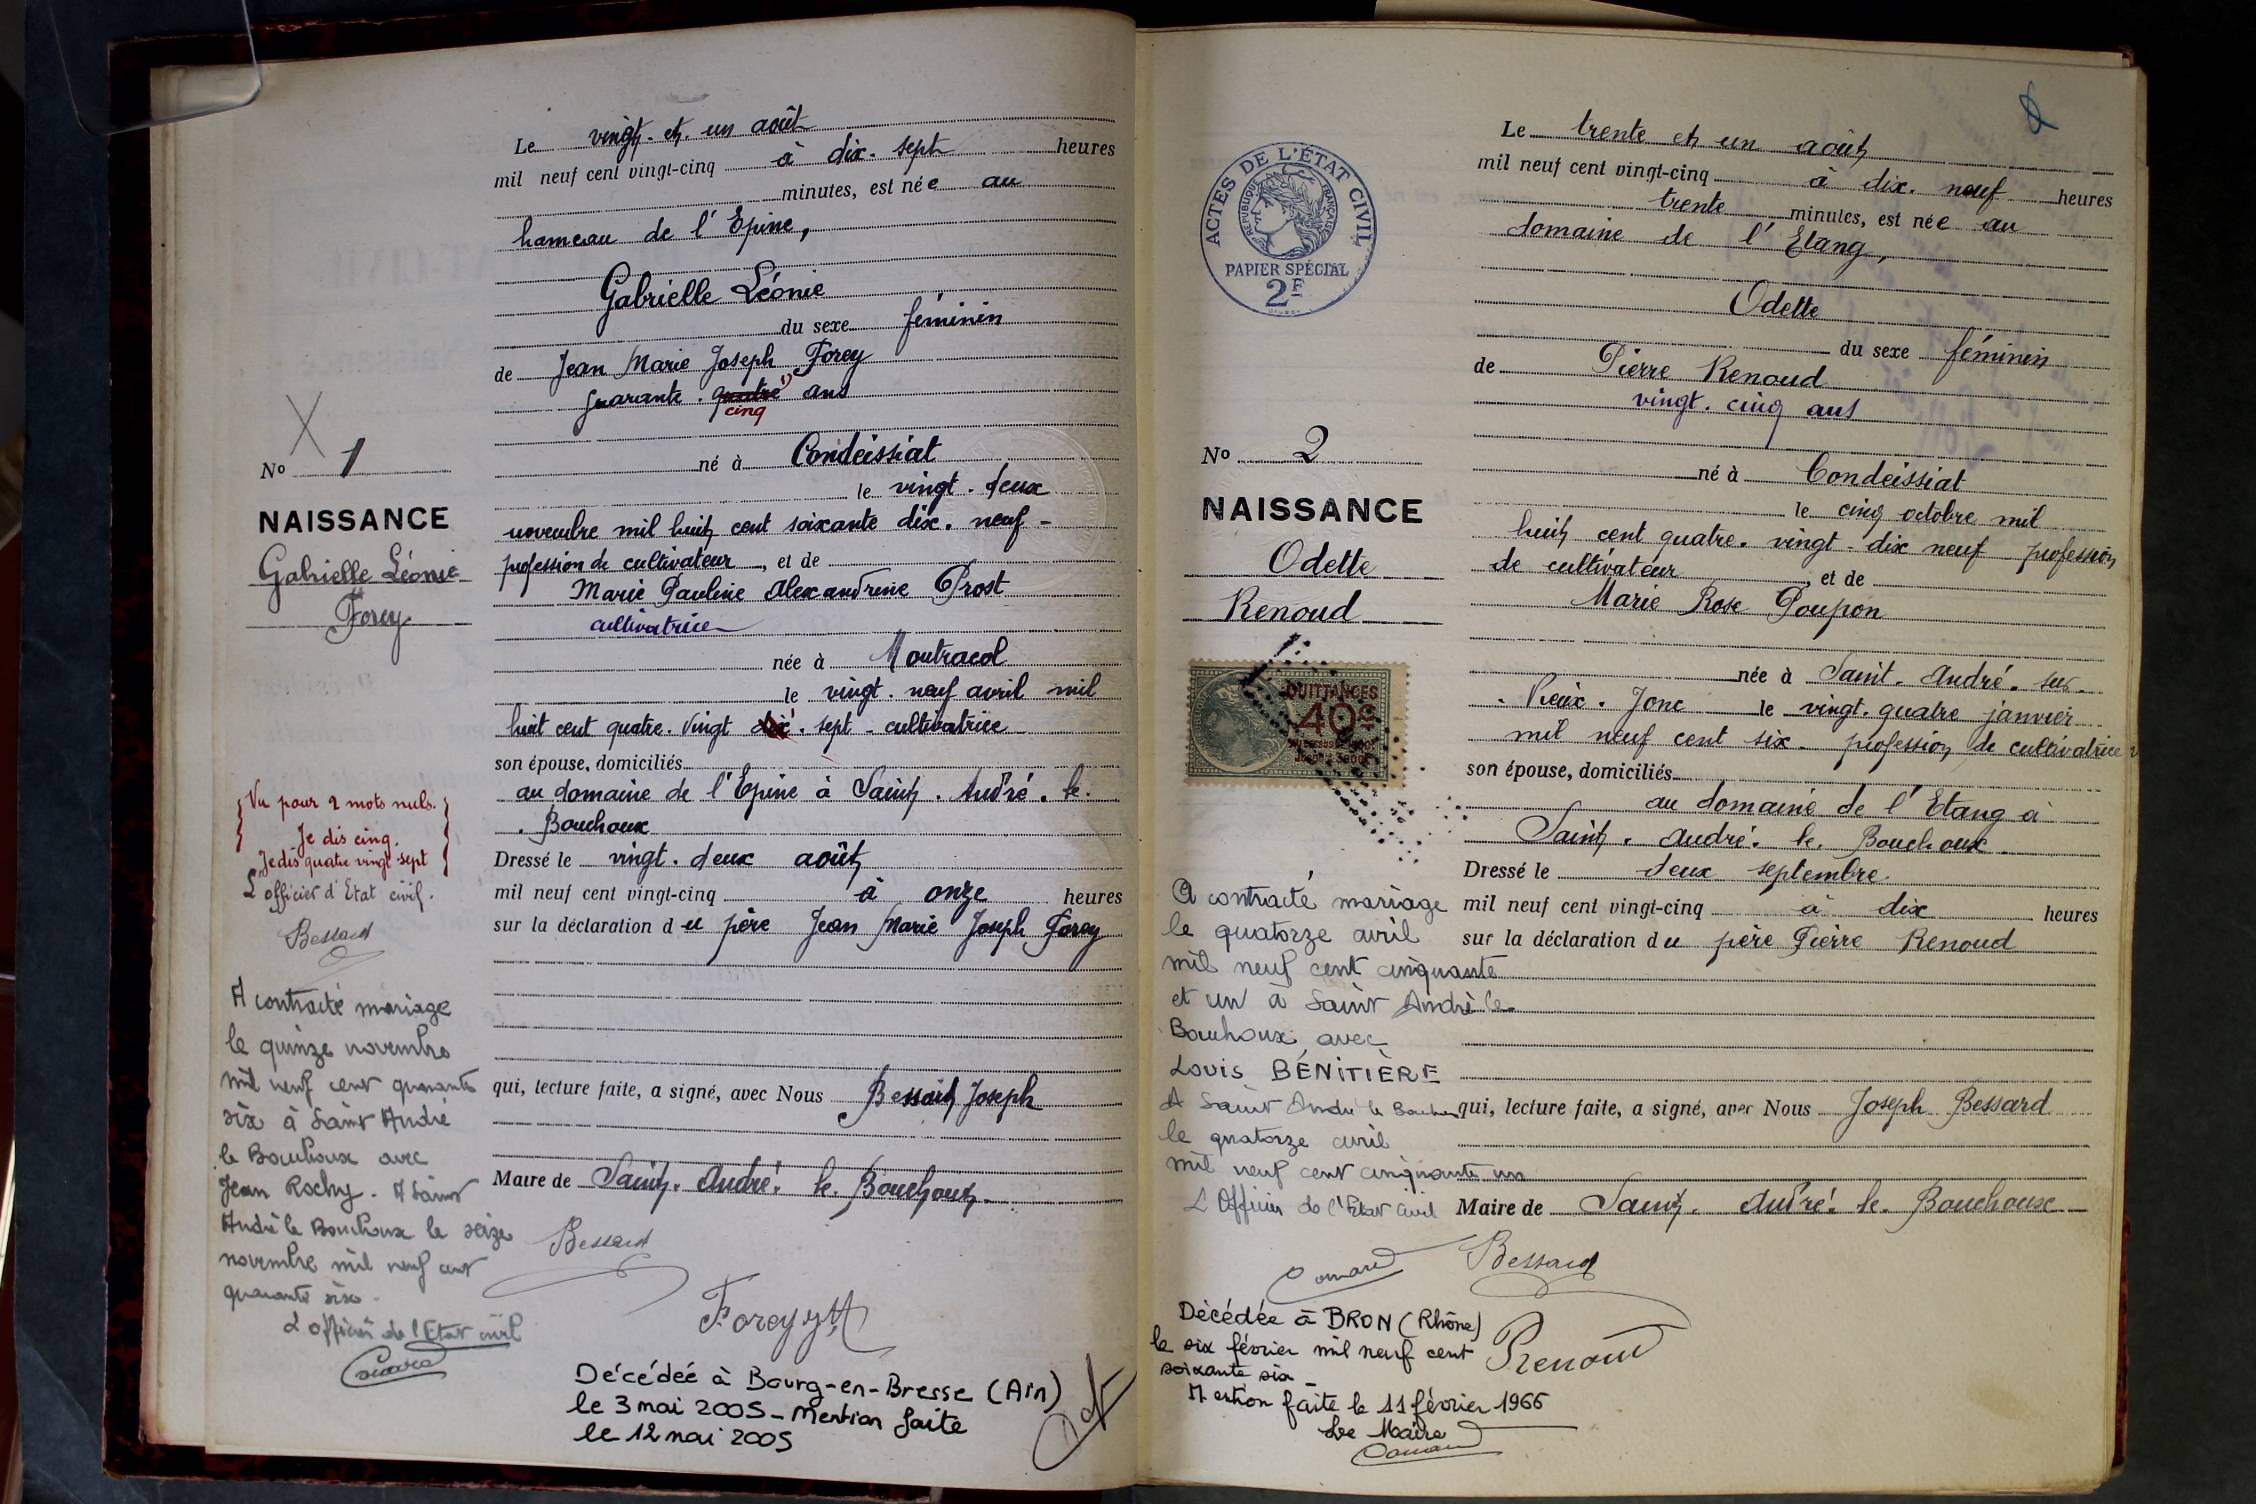 Le vingt. et. un août
mil neuf cent vingt-cinq à dix. sept heures
minutes, est née au
hameau de l'Epine,
Gabrielle Léonie
du sexe féminin
de Jean Marie Joseph Forey
quarante. quatre ans
cinq
né à Condeissiat
le vingt. deux
novembre mil huit cent soixante dix. neuf -
profession de cultivateur, et de
Marie Pauline Alexandrine Prost
cultivatrice
née à Montracol
le vingt. neuf avril mil
huit cent quatre. vingt dix. sept - cultivatrice
son épouse, domiciliés
au domaine de l'Epine à Saint. André. le.
. Bouchoux
Dressé le vingt. deux août
mil neuf cent vingt-cinq à onze heures
sur la déclaration du père Jean Marie Joseph Forey
qui, lecture faite, a signé, avec Nous Bessard Joseph
Maire de Saint. André. le. Bouchoux.
Bessard
Forey
Décédée à Bourg-en-Bresse (Ain)
le 3 mai 2005 - Mention faite
le 12 mai 2005
No 1
NAISSANCE
Gabrielle Léonie
Forey
Vu pour 2 mots nuls.
Je dis cinq.
Je dis quatre vingt-sept
L'officier d'Etat civil.
Bessard
A contracté mariage
le quinze novembre
mil neuf cent quarante
six à Saint André
le Bouchoux avec
Jean Rochy. A Saint
André le Bouchoux le seize
novembre mil neuf cent
quarante six -
L'officier de l'Etat civil
ACTES DE L'ÉTAT CIVIL
RÉPUBLIQUE FRANÇAISE
PAPIER SPÉCIAL
2F
Le trente et un août
mil neuf cent vingt-cinq à dix. neuf heures
trente minutes, est née au
domaine de l'Etang,
Odette
du sexe féminin
de Pierre Renoud
vingt. cinq ans
né à Condeissiat
le cinq octobre mil
huit cent quatre. vingt - dix neuf profession
de cultivateur, et de
Marie Rose Poupon
née à Saint. André. sur.
. Vieux. Jonc le vingt. quatre janvier
mil neuf cent six - profession de cultivatrice
son épouse, domiciliés
au domaine de l'Etang à
Saint. André. le. Bouchoux.
Dressé le deux septembre.
mil neuf cent vingt-cinq à dix heures
sur la déclaration du père Pierre Renoud
qui, lecture faite, a signé, avec Nous Joseph Bessard
Maire de Saint. André. le. Bouchoux
Bessard
Renoud
No 2
NAISSANCE
Odette
Renoud
QUITTANCES
40c
A contracté mariage
le quatorze avril
mil neuf cent cinquante
et un à Saint André le
Bouchoux avec
Louis BÉNITIÈRE
A Saint André le Bouchoux
le quatorze avril
mil neuf cent cinquante un
L'Officier de l'Etat Civil
Décédée à BRON (Rhône)
le six février mil neuf cent
soixante six -
Mention faite le 11 février 1966
Le Maire